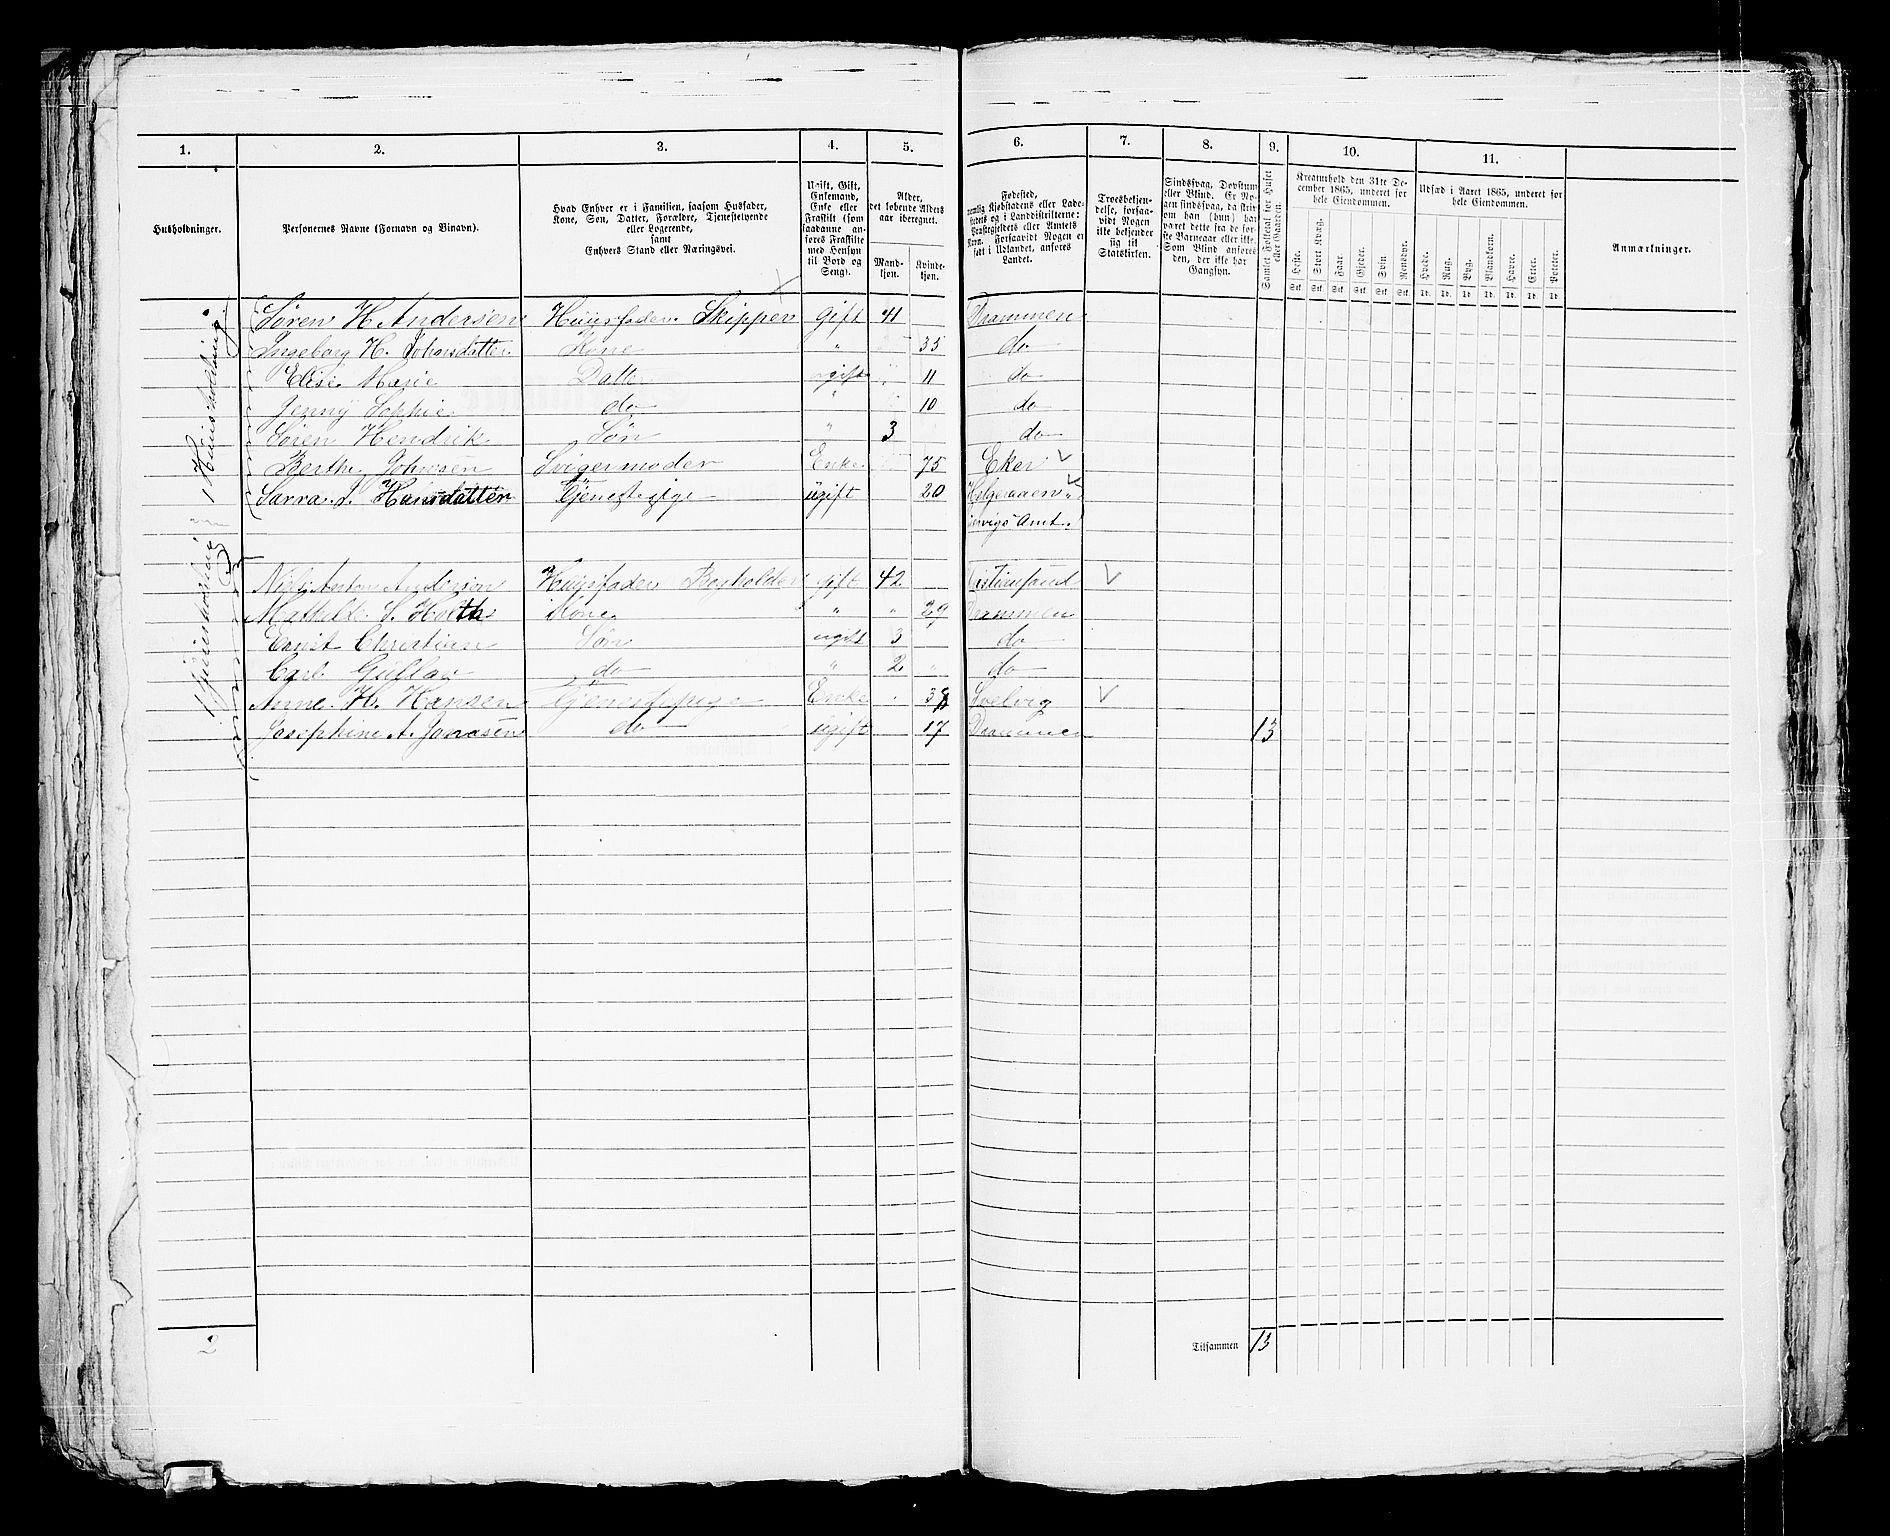 1. 2. 3. 4. 5. 6. 7. 8. 9. 10. 11.
Husholdninger.
Personernes Navne (Fornavn og Binavn).
Hvad Enhver er i Familien, saasom Husfader,
Kone, Søn, Datter, Forældre, Tjenestetyende
eller Logerende,
samt
Enhvers Stand eller Næringsvei.
Ugift, Gift,
Enkemand,
Enke eller
Fraskilt (som
saadanne an-
føres Fraskilte
med Hensyn
til Bord og
Seng).
Alder,
det løbende Alders-
aar iberegnet.
Mand-
kjøn.
Kvinde-
kjøn.
Fødested,
nemlig Kjøbstadens eller Lade-
stedets og i Landdistrikterne:
Præstegjeldets eller Amtets
Navn. Forsaavidt Nogen er
født i Udlandet, anføres
Landet.
Troesbekjen-
delse, forsaa-
vidt Nogen
ikke bekjender
sig til
Statskirken.
Sindssvag, Døvstum
eller Blind. Er No-
gen sindssvag, da skri-
ves om han (hun) har
været dette fra de før-
ste Barneaar eller ikke.
Som Blind ansøres
den, der ikke har
Gangsyn.
Samlet Folketal for Huset
eller Gaarden.
Kreaturhold den 31te De-
cember 1865, underet for
hele Eiendommen.
Heste. Stort Kvæg. Faar. Gjeder. Svin. Rensdyr.
Stk. Stk. Stk. Stk. Stk. Stk.
Udsæd i Aaret 1865, underet for
hele Eiendommen.
Hvede. Rug. Byg. Blandkorn. Havre. Erter. Poteter.
Td. Td. Td. Td. Td. Td. Td.
Anmærkninger.
1 Huusholdning
Søren H. Andersen Huusfader. Skipper gift 41 Drammen
Ingeborg H. Johansdatter Kone " 35 do
Elise Marie Datter ugift " 11 do
Jenny Sophie do " 10 do
Søren Hendrik Søn " 3 do
Berthe Johnsen Svigermoder Enke 75 Eker
Sarra J. Hansdatter Tjenestepige ugift 20 Helgeraaen
Amt.
1 Huusholdning
Nils Anton Anderson Huusfader gift 42 Kristiansand
Mathilde S. Holth Kone " " 29 Drammen
Ernst Christian Søn ugift 3 do
Carl Gustav do " 2 " do
Anne H. Hansen Tjenestepige Enke " Svelvig
Josephine A. Janasen do ugift 17 Drammen 13
2
Tilsammen 13